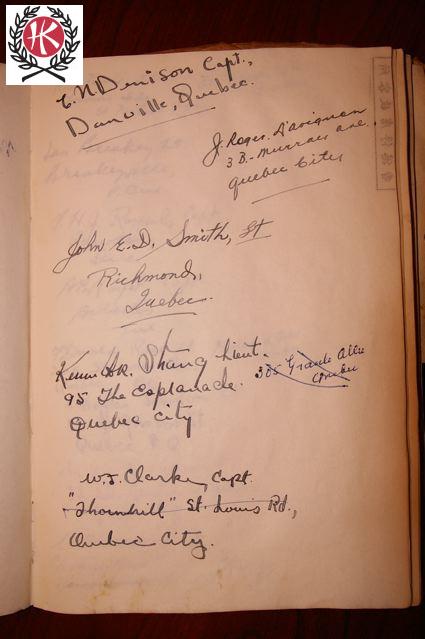 HK
E. N Denison Capt.,
Danville, Quebec.
J. Roger D'avignon
3 B. Murray ave.
Quebec City
John E. D. Smith, Lt
Richmond,
Quebec.
Shang Lieut.
95 The Esplanade.
Quebec City
305 Grande Allée
Quebec
W. F. Clarke, Capt.
"Thornhill" St. Louis Rd.,
Quebec City.